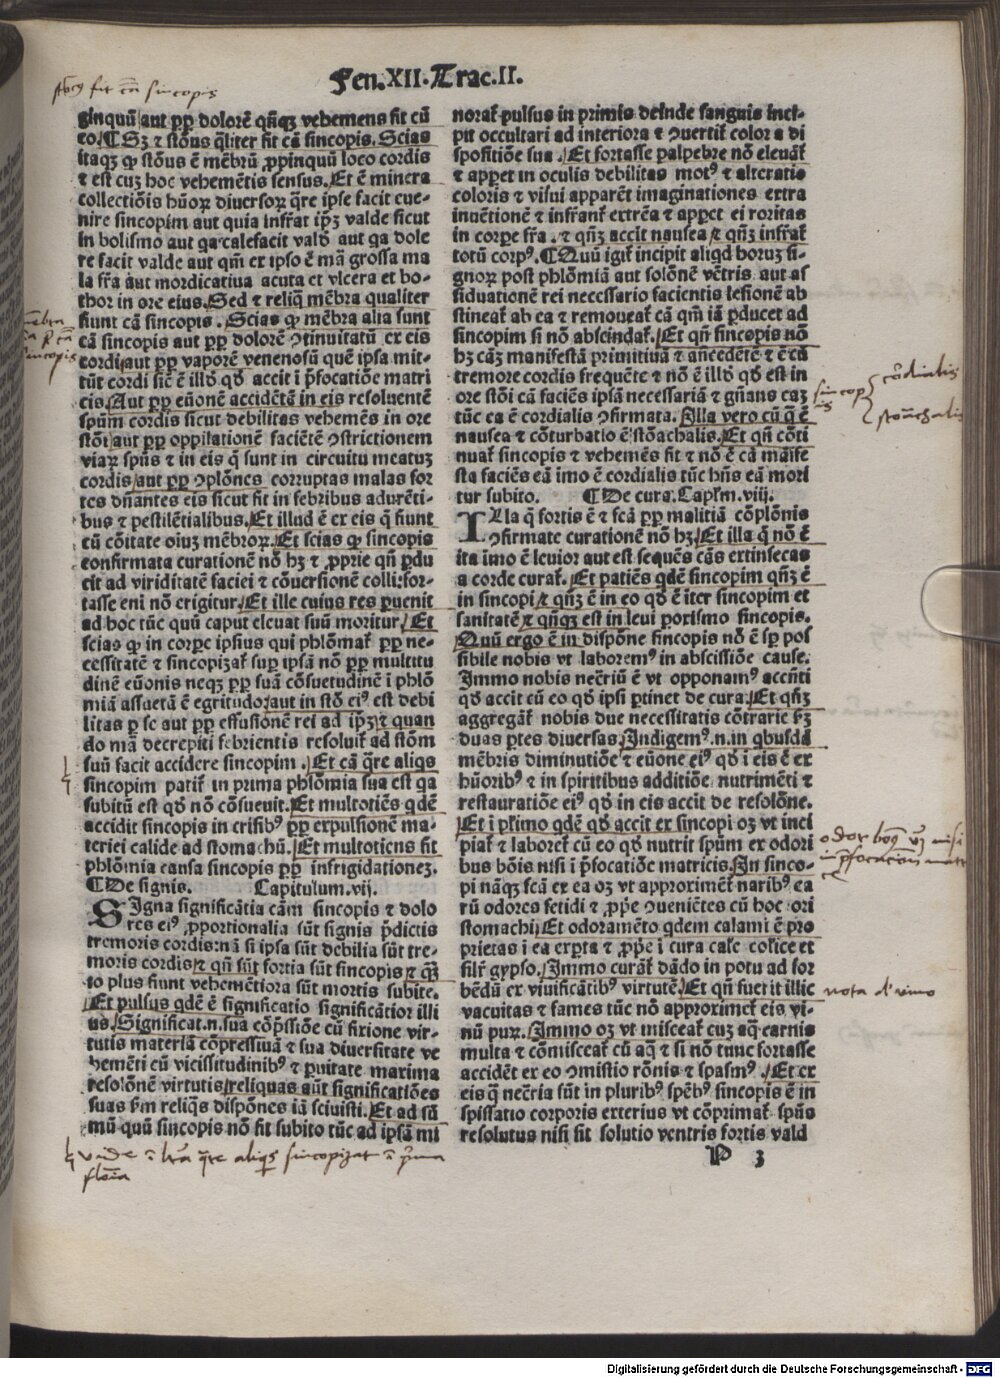 Fen.XII.Trac.II.
ginquū aut ꝓp dolorē qñqꝫ vehemens fit cū
eo.¶Sꝫ ⁊ stõus q̃liter fit cā sincopis. Scias
itaqꝫ ꝙ stõus ē mēbrū ꝓpinquū loco cordis
⁊ est cuꝫ hoc vehemētis sensus. Et ē minera
collectiõis hūoꝝ diuersoꝝ q̃re ipse facit eue-
nire sincopim aut quia infr̃at ip̃ꝫ valde sicut
in bolismo aut qa calefacit vald̄ aut qa dole
re facit valde aut qm̄ ex ipso ē mā grossa ma
la fr̃a aut mordicatiua acuta et vlcera et bo-
thor in ore eius. Sed ⁊ reliq̄ mēbra qualiter
fiunt cā sincopis . Scias ꝙ mēbra alia sunt
cā sincopis aut ꝓp dolorē ↄtinuitatū ex eis
cordi aut ꝓp vaporē venenosū quē ipsa mit-
tūt cordi sic̄ ē illđ qđ accit i p̃focatiõe matri
cis. Aut ꝓp eūonē accidētā in eis resoluentē
spūm cordis sicut debilitas vehemēs in ore
stõi aut ꝓp oppilationē faciētē ↄstrictionem
viaꝝ spūs ⁊ in eis q̄ sunt in circuitu meatuꝫ
cordis aut ꝓp ↄplōnes corruptas malas for
tes dñantes eis sicut fit in febribus adurēti-
bus ⁊ pestilētialibus. Et illud ē ex eis q̄ fiunt
cū cōitate oiuꝫ mēbroꝝ. Et scias ꝙ sincopis
confirmata curationē nō hꝫ ⁊ ꝓprie qñ ꝑdu
cit ad viriditatē faciei ⁊ cōuersionē colli:for-
tasse eni nō erigitur. Et ille cuius res ꝑuenit
ad hoc tūc quū caput eleuat suū moritur. Et
scias ꝙ in corpe ipsius qui phlōmat̃ ꝓp ne-
cessitatē ⁊ sincopizat̃ sup ipsā nō ꝓp multitu
dinē eūonis neqꝫ ꝓp suā cōsuetudinē i phlō
miā assuetā ē egritudo: aut in stō eiꝰ est debi
litas ꝑ se aut ꝓp effusionē rei ad ip̃ꝫ ⁊ quan
do mā decrepiti febrientis resoluit̃ ad stōm
suū facit accidere sincopim . Et cā q̃re aliqs
sincopim patit̃ in prima phlōmia sua est qa
subitū est qđ nō cōsueuit. Et multotiēs qdē
accidit sincopis in crisibꝰ ꝓp expulsionē ma-
teriei calide ad stomachū. Et multotiens fit
phlōmia causa sincopis ꝓp infrigidationeꝫ.
¶De signis. Capitulum.vij.
SIgna significātia cām sincopis ⁊ dolo
res eiꝰ ꝓportionalia sūt signis p̃dictis
tremoris cordis:nā si ipsa sūt debilia sūt tre-
moris cordis ⁊ qñ sūt fortia sūt sincopis ⁊ qn̄
to plus fiunt vehemētiora sūt mortis subite.
Et pulsus qdē ē significatio significātior illi
us. Significat.n.sua cōp̃ssiōe cū fixione vir-
tutis materiā cōpressiuā ⁊ sua diuersitate ve
hemēti cū vicissitudinibꝰ ⁊ ꝑuitate maxima
resolōnē virtutis reliquas aūt significatiōes
suas fm reliq̃s dispōnes iā sciuisti. Et ad sū
mū quū sincopis nō fit subito tūc ad ipsā mi
norat̃ pulsus in primis deinde sanguis inci-
pit occultari ad interiora ⁊ ↄuertit̃ color a di
spositiōe sua . Et fortasse palpebre nō eleuāt̃
⁊ appet in oculis debilitas motꝰ ⁊ alteratio
coloris ⁊ visui apparēt imaginationes extra
inuētionē ⁊ infranĩ extrēa ⁊ appet ei roritas
in corpe fr̃a . ⁊ qñꝫ accit nausea ⁊ qñꝫ infrat̃
totū corpꝰ. ¶Quū igit̃ incipit aliqd horuꝫ si-
gnoꝝ post phlōmiā aut solōnē vētris aut as
siduationē rei necessario facientis lesionē ab
stineat̃ ab ea ⁊ remoueat̃ cā qm̄ iā ꝑducet ad
sincopim si nō abscindat̃. Et qñ sincopis nō
hꝫ cāꝫ manifestā primitiuā ⁊ añcedētē ⁊ ē cū
tremore cordis frequēte ⁊ nō ē illđ qđ est in
ore stōi cā faciēs ipsā necessariā ⁊ gñans eaꝫ
tūc ea ē cordialis ↄfirmata. Illa vero cū q̄ ē
nausea ⁊ cōturbatio ē stōachalis. Et qñ cōti
nuat̃ sincopis ⁊ vehemēs fit ⁊ nō ē cā māife
sta faciēs eā imo ē cordialis tūc hñs eā mori
tur subito. ¶De cura. Capl̃m.viij.
ILla q̄ fortis ē ⁊ fcā ꝓp malitiā cōplōnis
ↄfirmate curationē nō hꝫ. Et illa q̄ nō ē
ita imo ē leuior aut est sequēs cās extinsecas
a corde curat̃. Et patiēs qdē sincopim qñꝫ ē
in sincopi ⁊ qñꝫ ē in eo qđ ē iter sincopim et
sanitatē ⁊ qñqꝫ est in leui porismo sincopis.
Quū ergo ē in dispōne sincopis nō ē sp pos
sibile nobis vt laboremꝰ in abscissiōe cause.
Immo nobis necr̃iū ē vt opponamꝰ accñti
qđ accit cū eo qđ ipsi ꝑtinet de cura. Et qñꝫ
aggregāt̃ nobis due necessitatis cōtrarie fꝫ
duas ꝑtes diuersas. Indigemꝰ.n.in qbusdā
mēbris diminutiōe ⁊ eūone eiꝰ qđ i eis ē ex
hūoribꝰ ⁊ in spiritibus additiōe nutrimēti ⁊
restauratiōe eiꝰ qđ in eis accit de resolōne.
Et i pl̃imo qdē qđ accit ex sincopi oꝫ vt inci
piat̃ ⁊ laboret̃ cū eo qđ nutrit spūm ex odori
bus bōis nisi i p̃focatiōe matricis. In sinco-
pi nāqꝫ fcā ex ea oꝫ vt approximēt̃ naribꝰ ea
rū odores fetidi ⁊ ꝓpe ↄueniētes cū hoc ori
stomachi. Et odoramēto qdem calami ē pro
prietas i ea expta ⁊ ꝓpe i cura calc̄ colice et
silr̃ gypso. Immo curat̃ dādo in potu ad sor
bēdū ex viuificātibꝰ virtutē. Et qñ fuerit illic
vacuitas ⁊ fames tūc nō approximet̃ eis vi-
nū puꝝ. Immo oꝫ vt misceat̃ cuꝫ aq̄ carnis
multa ⁊ cōmisceat̃ cū aq̄ ⁊ si nō tunc fortasse
accidēt ex eo ↄmistio rōnis ⁊ spasmꝰ . Et ex
eis q̄ necr̃ia sūt in pluribꝰ spēbꝰ sincopis ē in
spissatio corporis exterius vt cōprimat̃ spūs
resolutus nisi sit solutio ventris fortis vald
P 3
cordialis
stomachalis
nota de vino
Digitalisierung gefördert durch die Deutsche Forschungsgemeinschaft - DFG